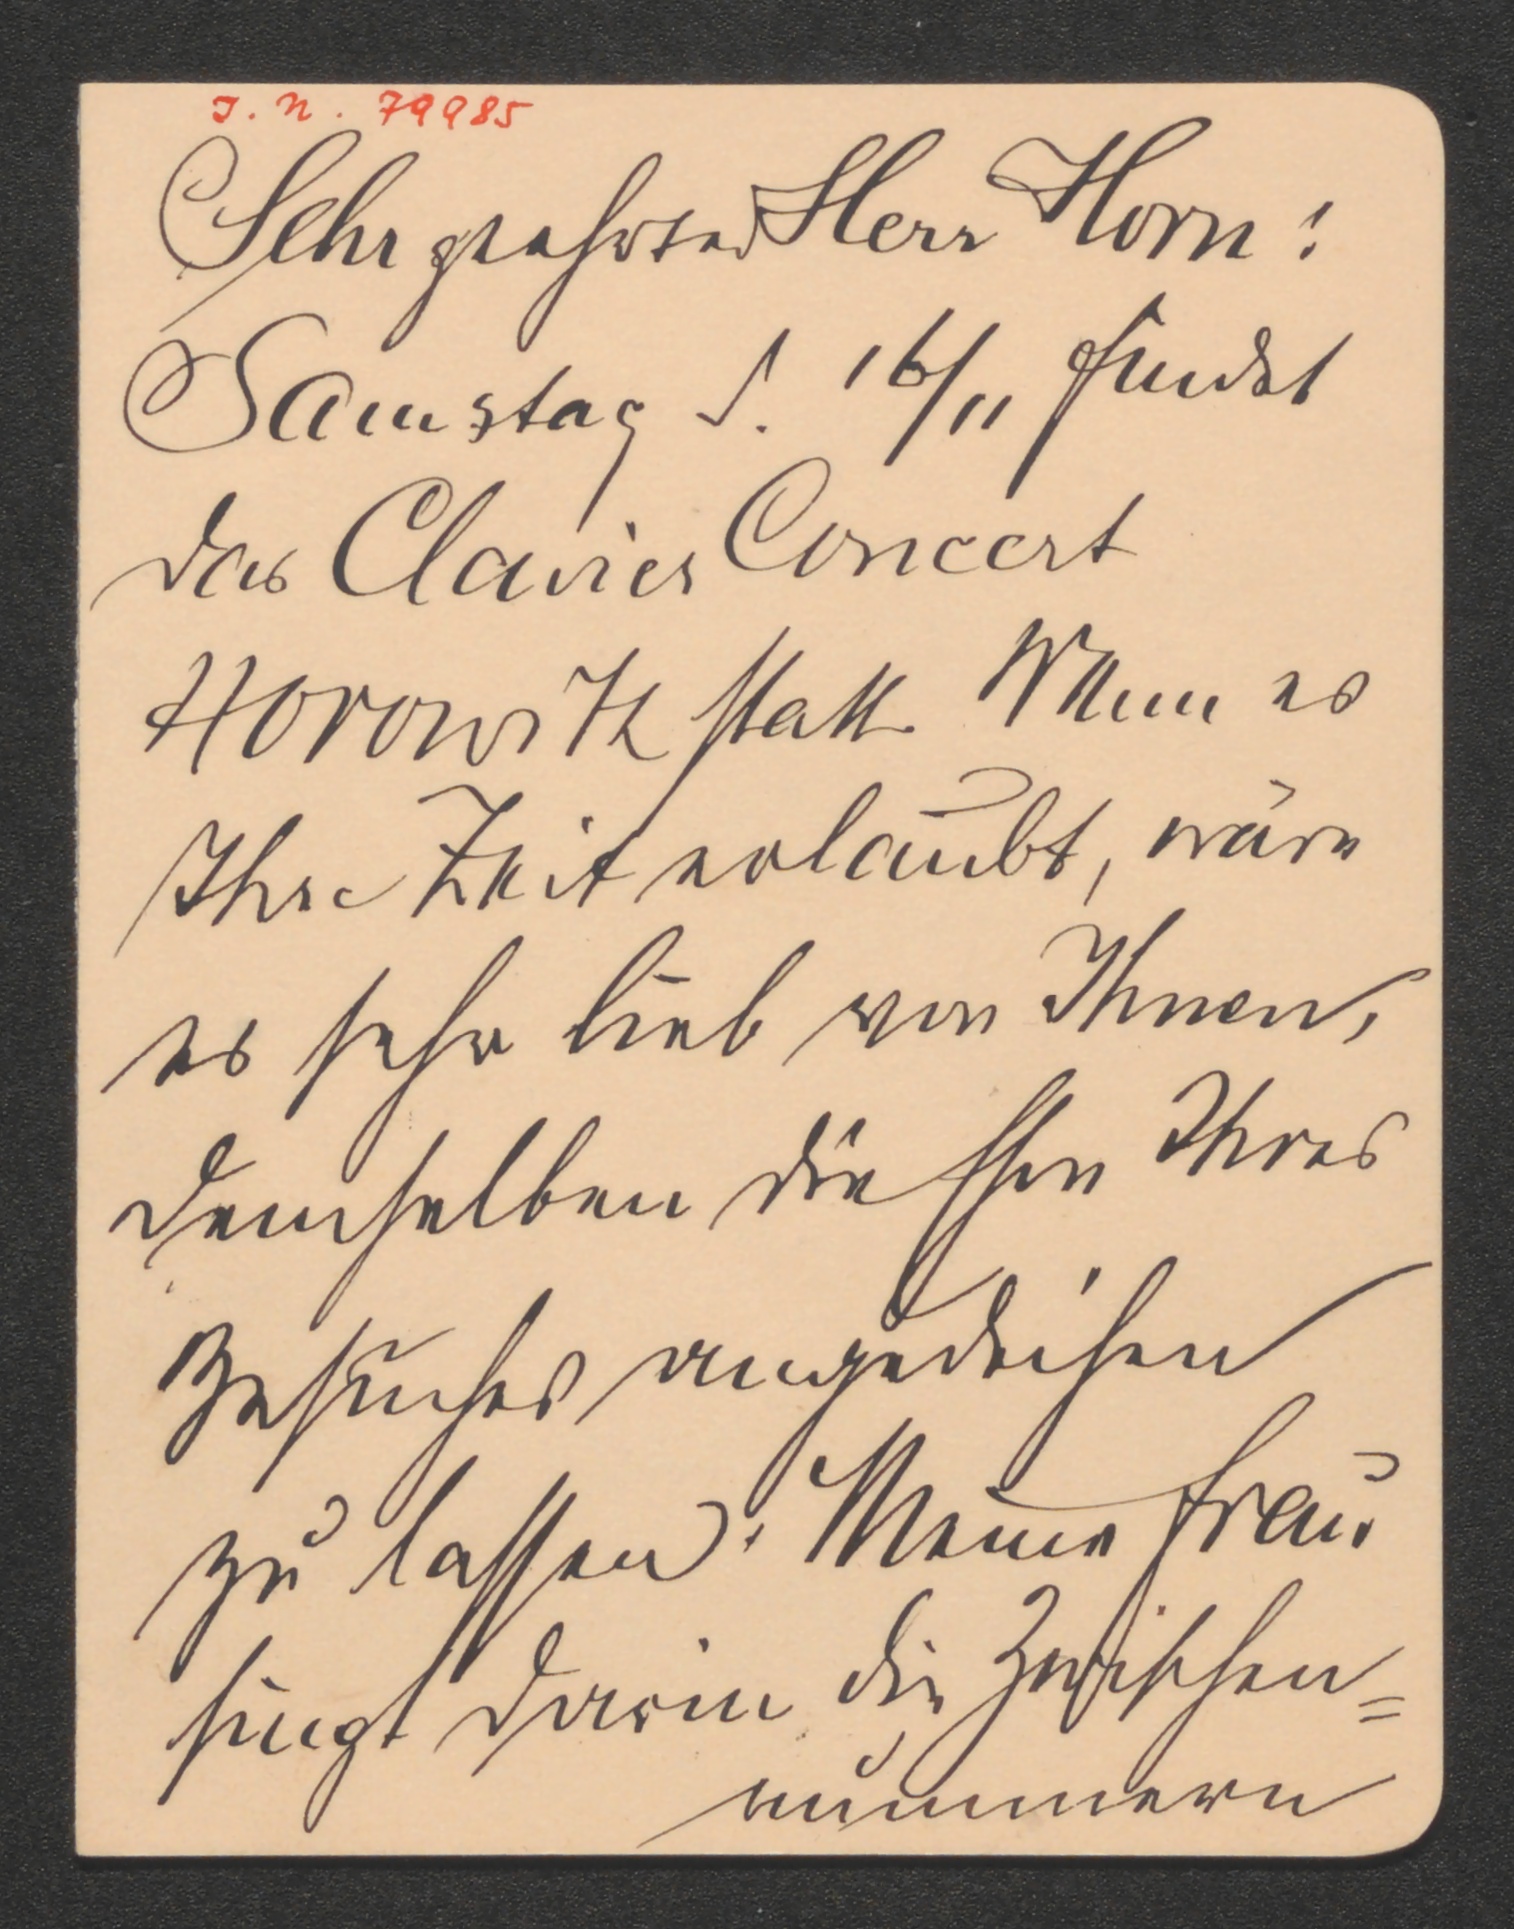 J. N. 79985
Sehr geehrter Herr Horn!
Samstag d. 16/11 findet
das Clavier Concert
Horowitz statt. Wenn es
Ihre Zeit erlaubt, wäre
es sehr lieb von Ihnen,
demselben die Ehre Ihres
Besuches angedeihen
zu lassen. Meine Frau
singt darin die Zwischen=
nummern